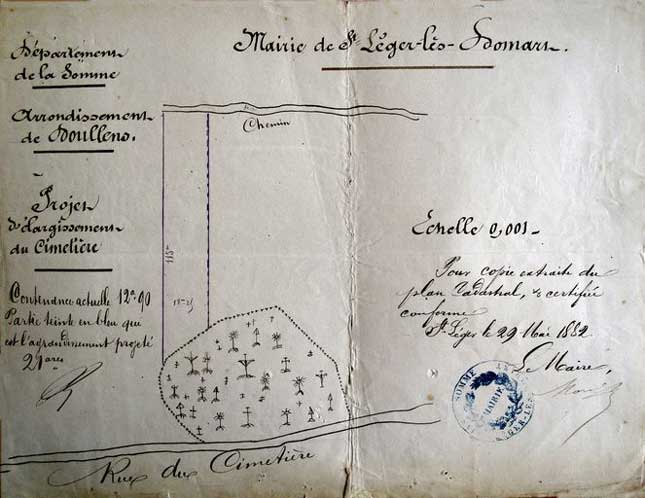 Département
de la Somme
Arrondissement
de Doullens.
Projet
d'élargissement
du Cimetière
Contenance actuelle 12ª 90
Partie teinte en bleu qui
est l'agrandissement projeté
21 ares
Mairie de St Léger-lès-Domart.
Chemin
115m
Echelle 0,001
Pour copie extraite du
plan Cadastral, & certifiée
conforme
St Léger le 29 Mai 1882
Le Maire,
SOMME
MAIRIE
Rue du Cimetière